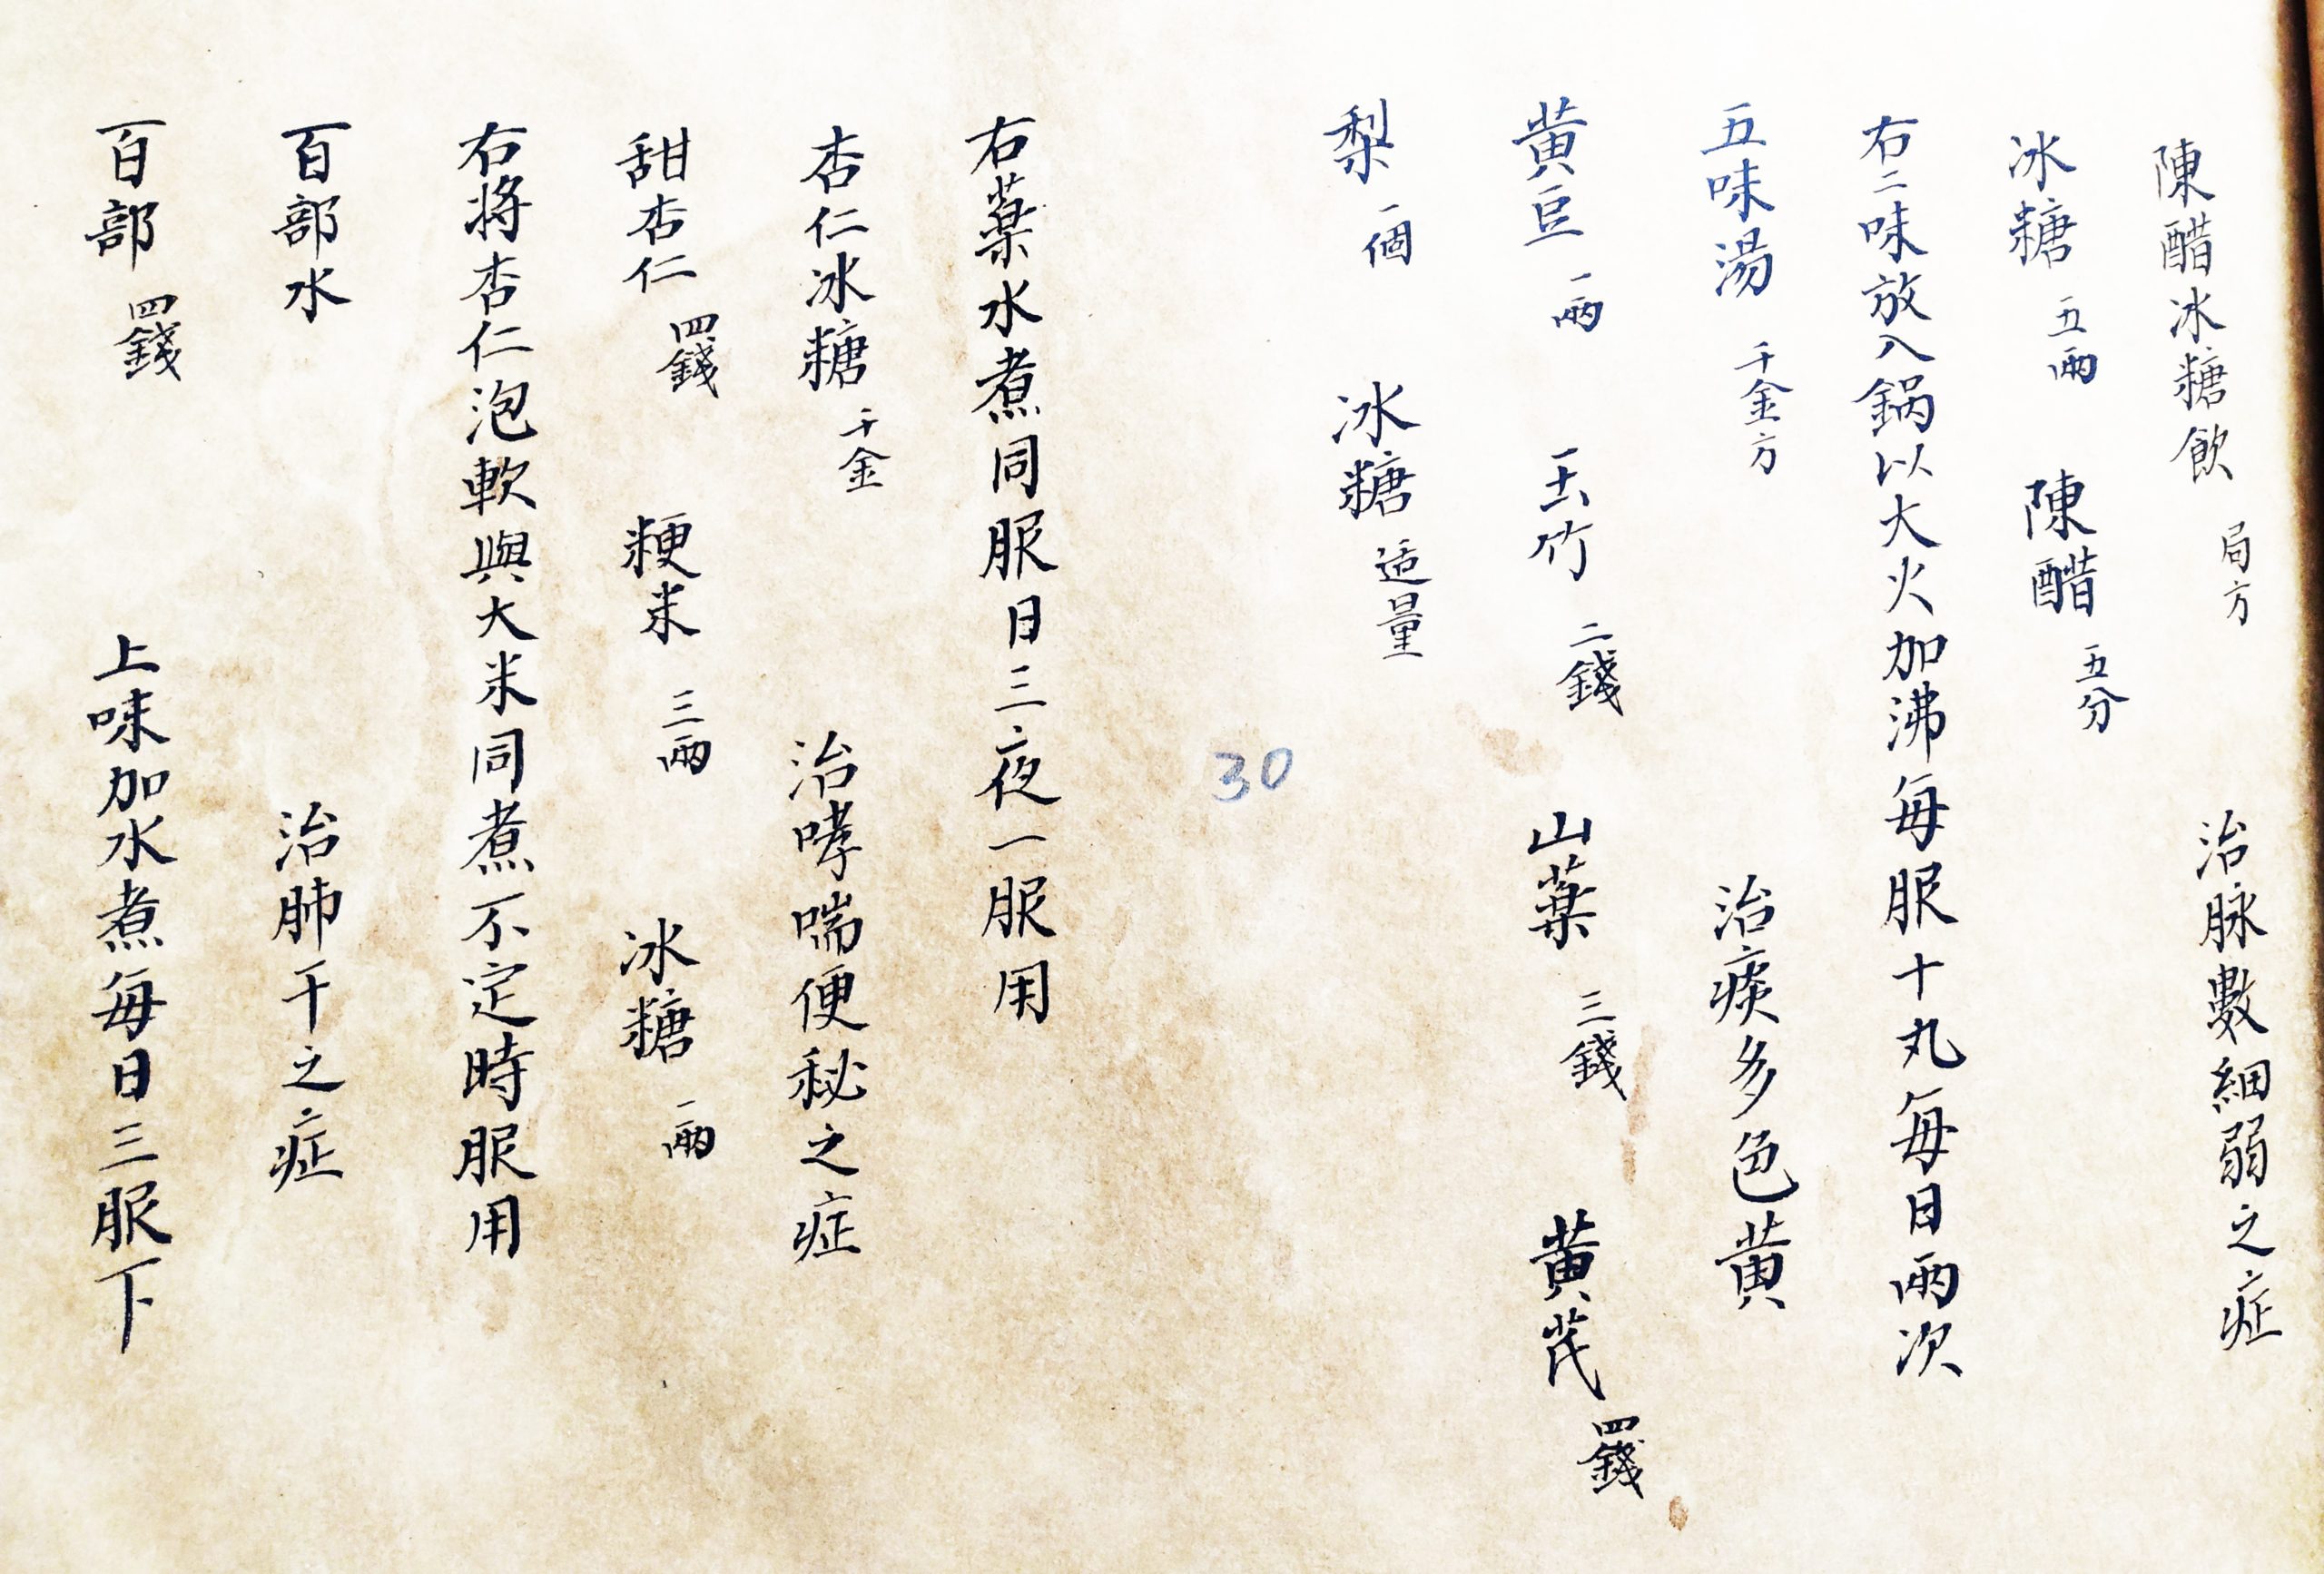 陳醋冰糖飲 局方 治脉數細弱之症
冰糖 五兩 陳醋 五分
右二味放入鍋以大火加沸每服十丸每日兩次
五味湯 千金方 治痰多色黄
黄豆 一兩 玉竹 二錢 山藥 三錢 黄芪 四錢
梨 一個 冰糖 适量
30
右藥水煮同服日三夜一服用
杏仁冰糖 千金 治哮喘便秘之症
甜杏仁 四錢 粳米 三兩 冰糖 一兩
右将杏仁泡軟與大米同煮不定時服用
百部水 治肺干之症
百部 四錢 上味加水煮每日三服下